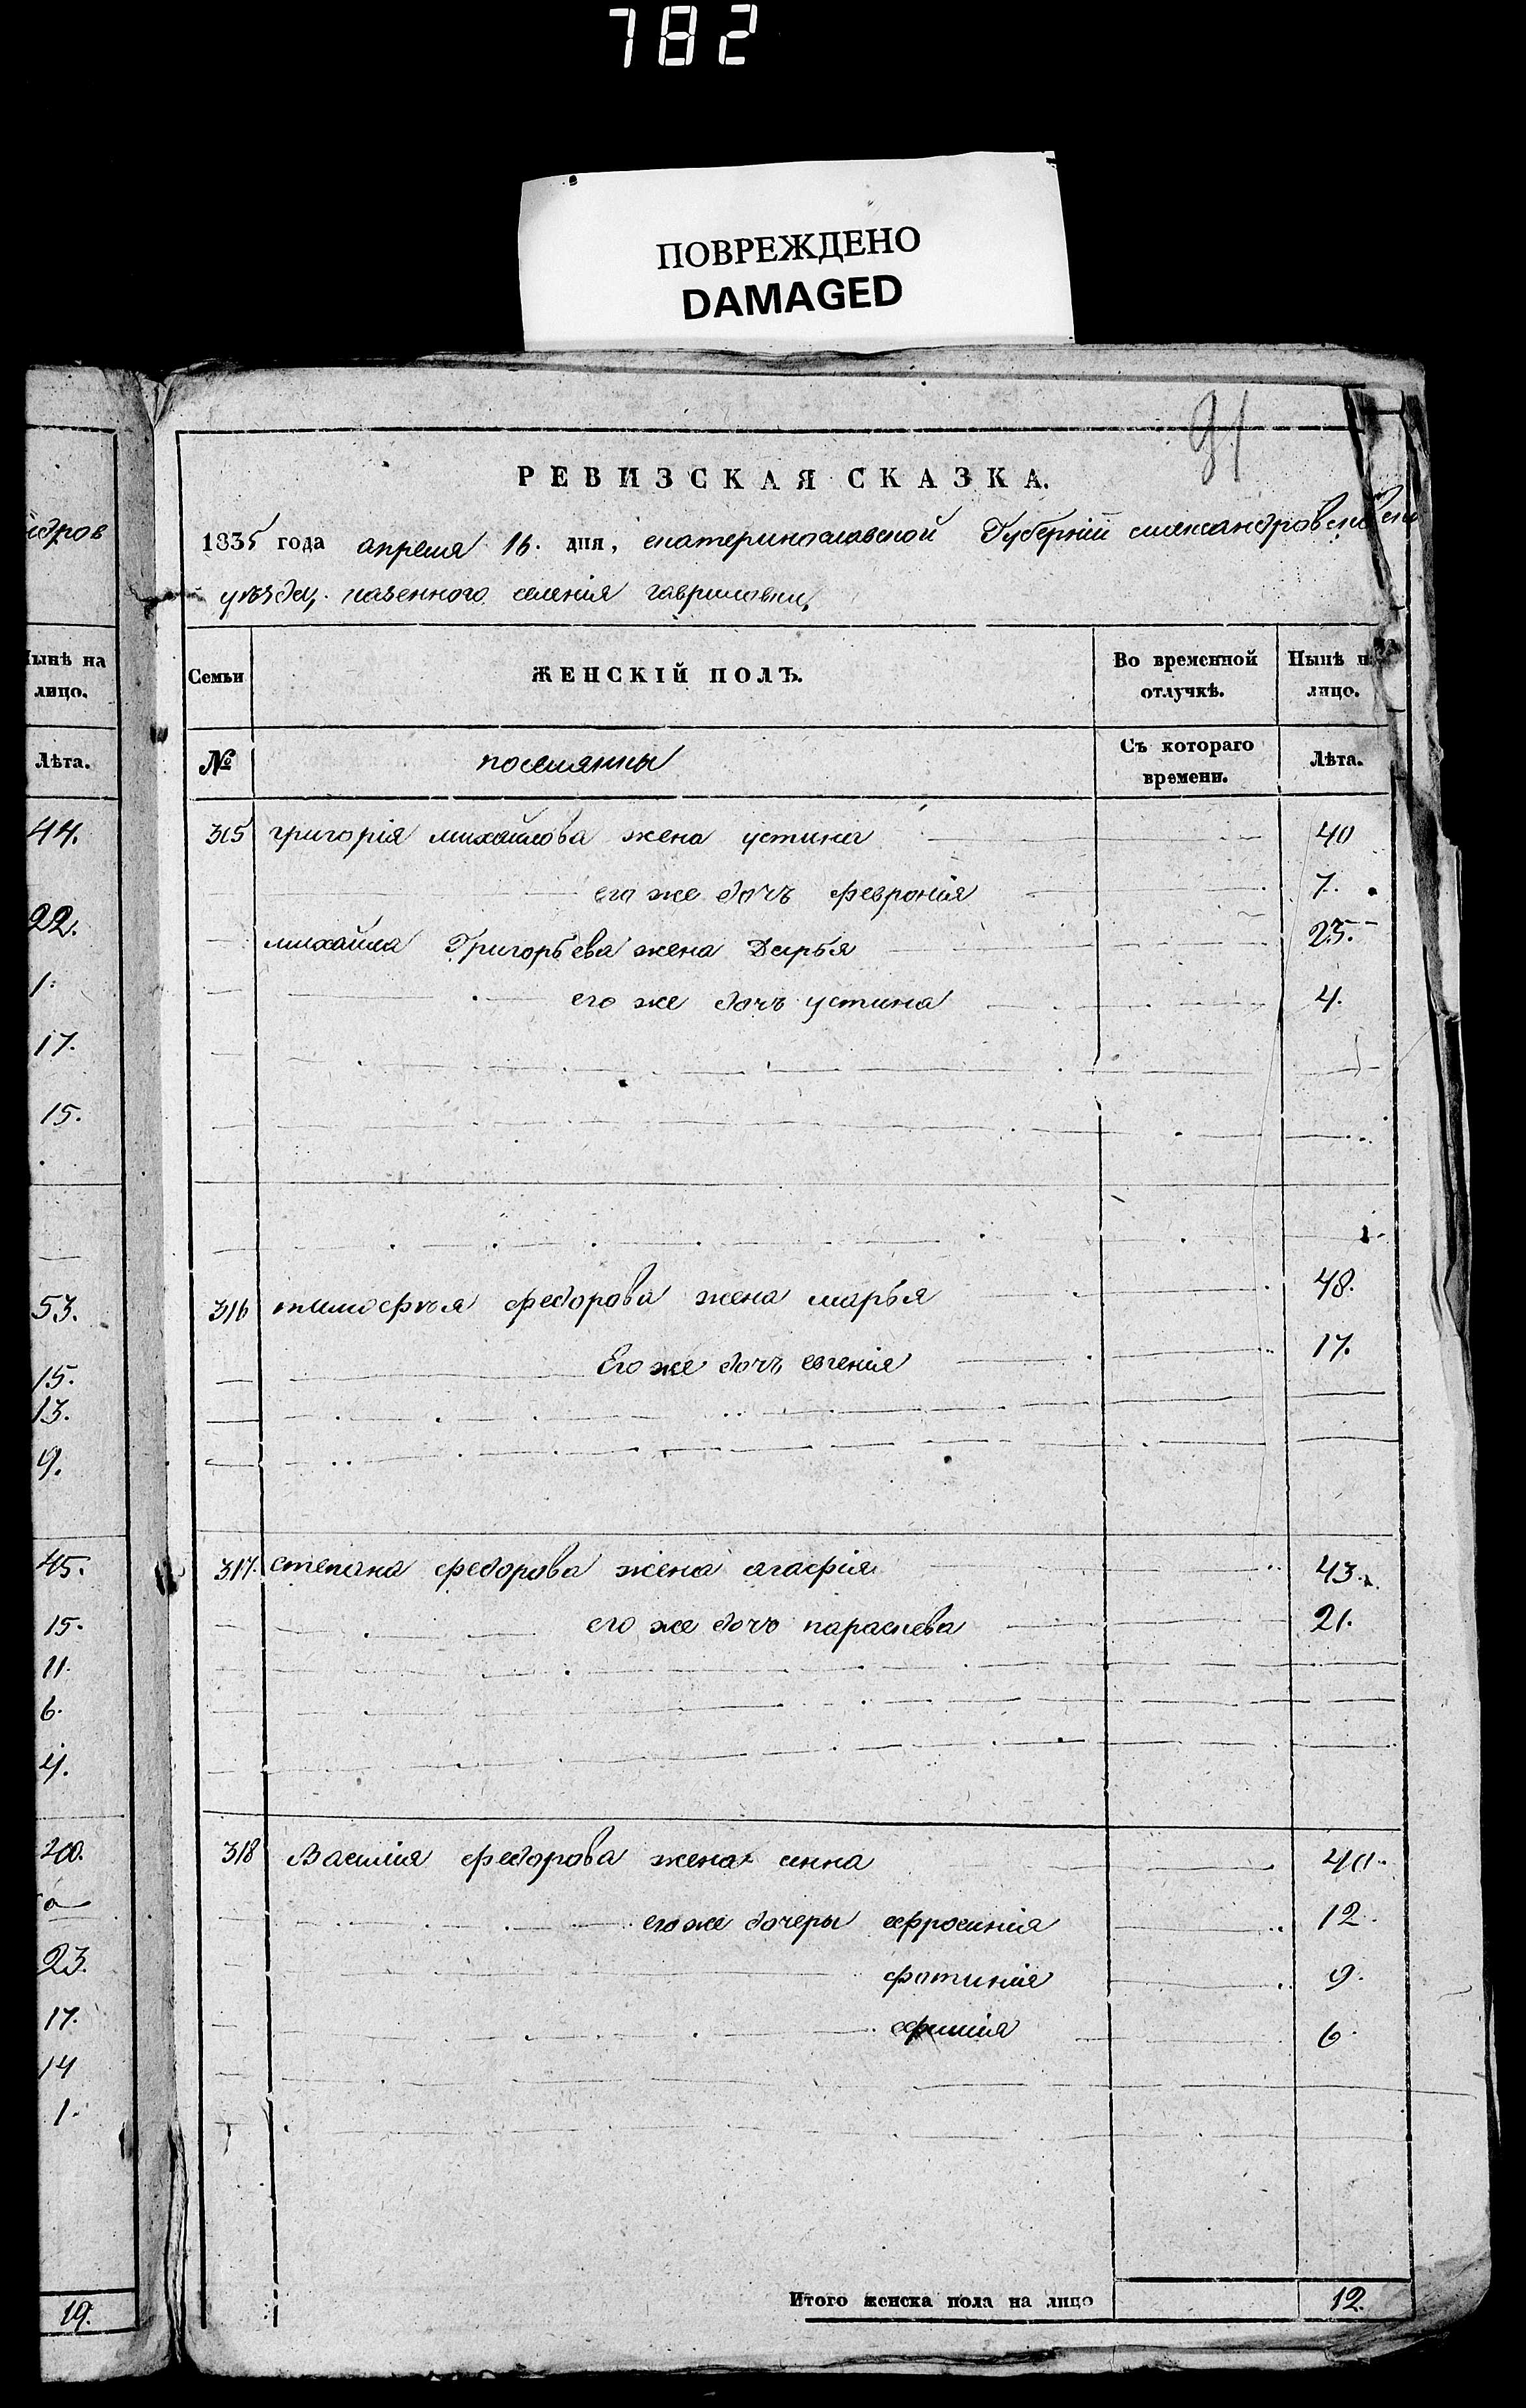 782
ПОВРЕЖДЕНО
DAMAGED
91
РЕВИЗСКАЯ СКАЗКА.
1835 года апреля 16. дня, екатеринославской Губерніи александровской
уѣзда, казенного селенія гавриловки,
Семьи
ЖЕНСКІЙ ПОЛЪ.
Во временной отлучкѣ.
Нынѣ на лицо.
№
поселянки
Съ котораго времени.
Лѣта.
315 григорія михайлова жена устина 40
его же дочь февронія 7.
михайла Григорьева жена Дарья 25.
его же дочь устина 4.
316 тимофѣя федорова жена марья 48.
Его же дочь евгенія 17.
317. степана федорова жена агафія 43.
его же дочь параскева 21.
318 Василія федорова жена анна 40.
его же дочеры ефросинія 12.
фотинія 9.
6.
Итого женска пола на лицо 12.
едров
Нынѣ на
лицо.
Лѣта.
44.
22.
1.
17.
15.
53.
15.
13.
9.
45.
15.
11.
6.
4.
40.
23.
17.
14
1.
19.